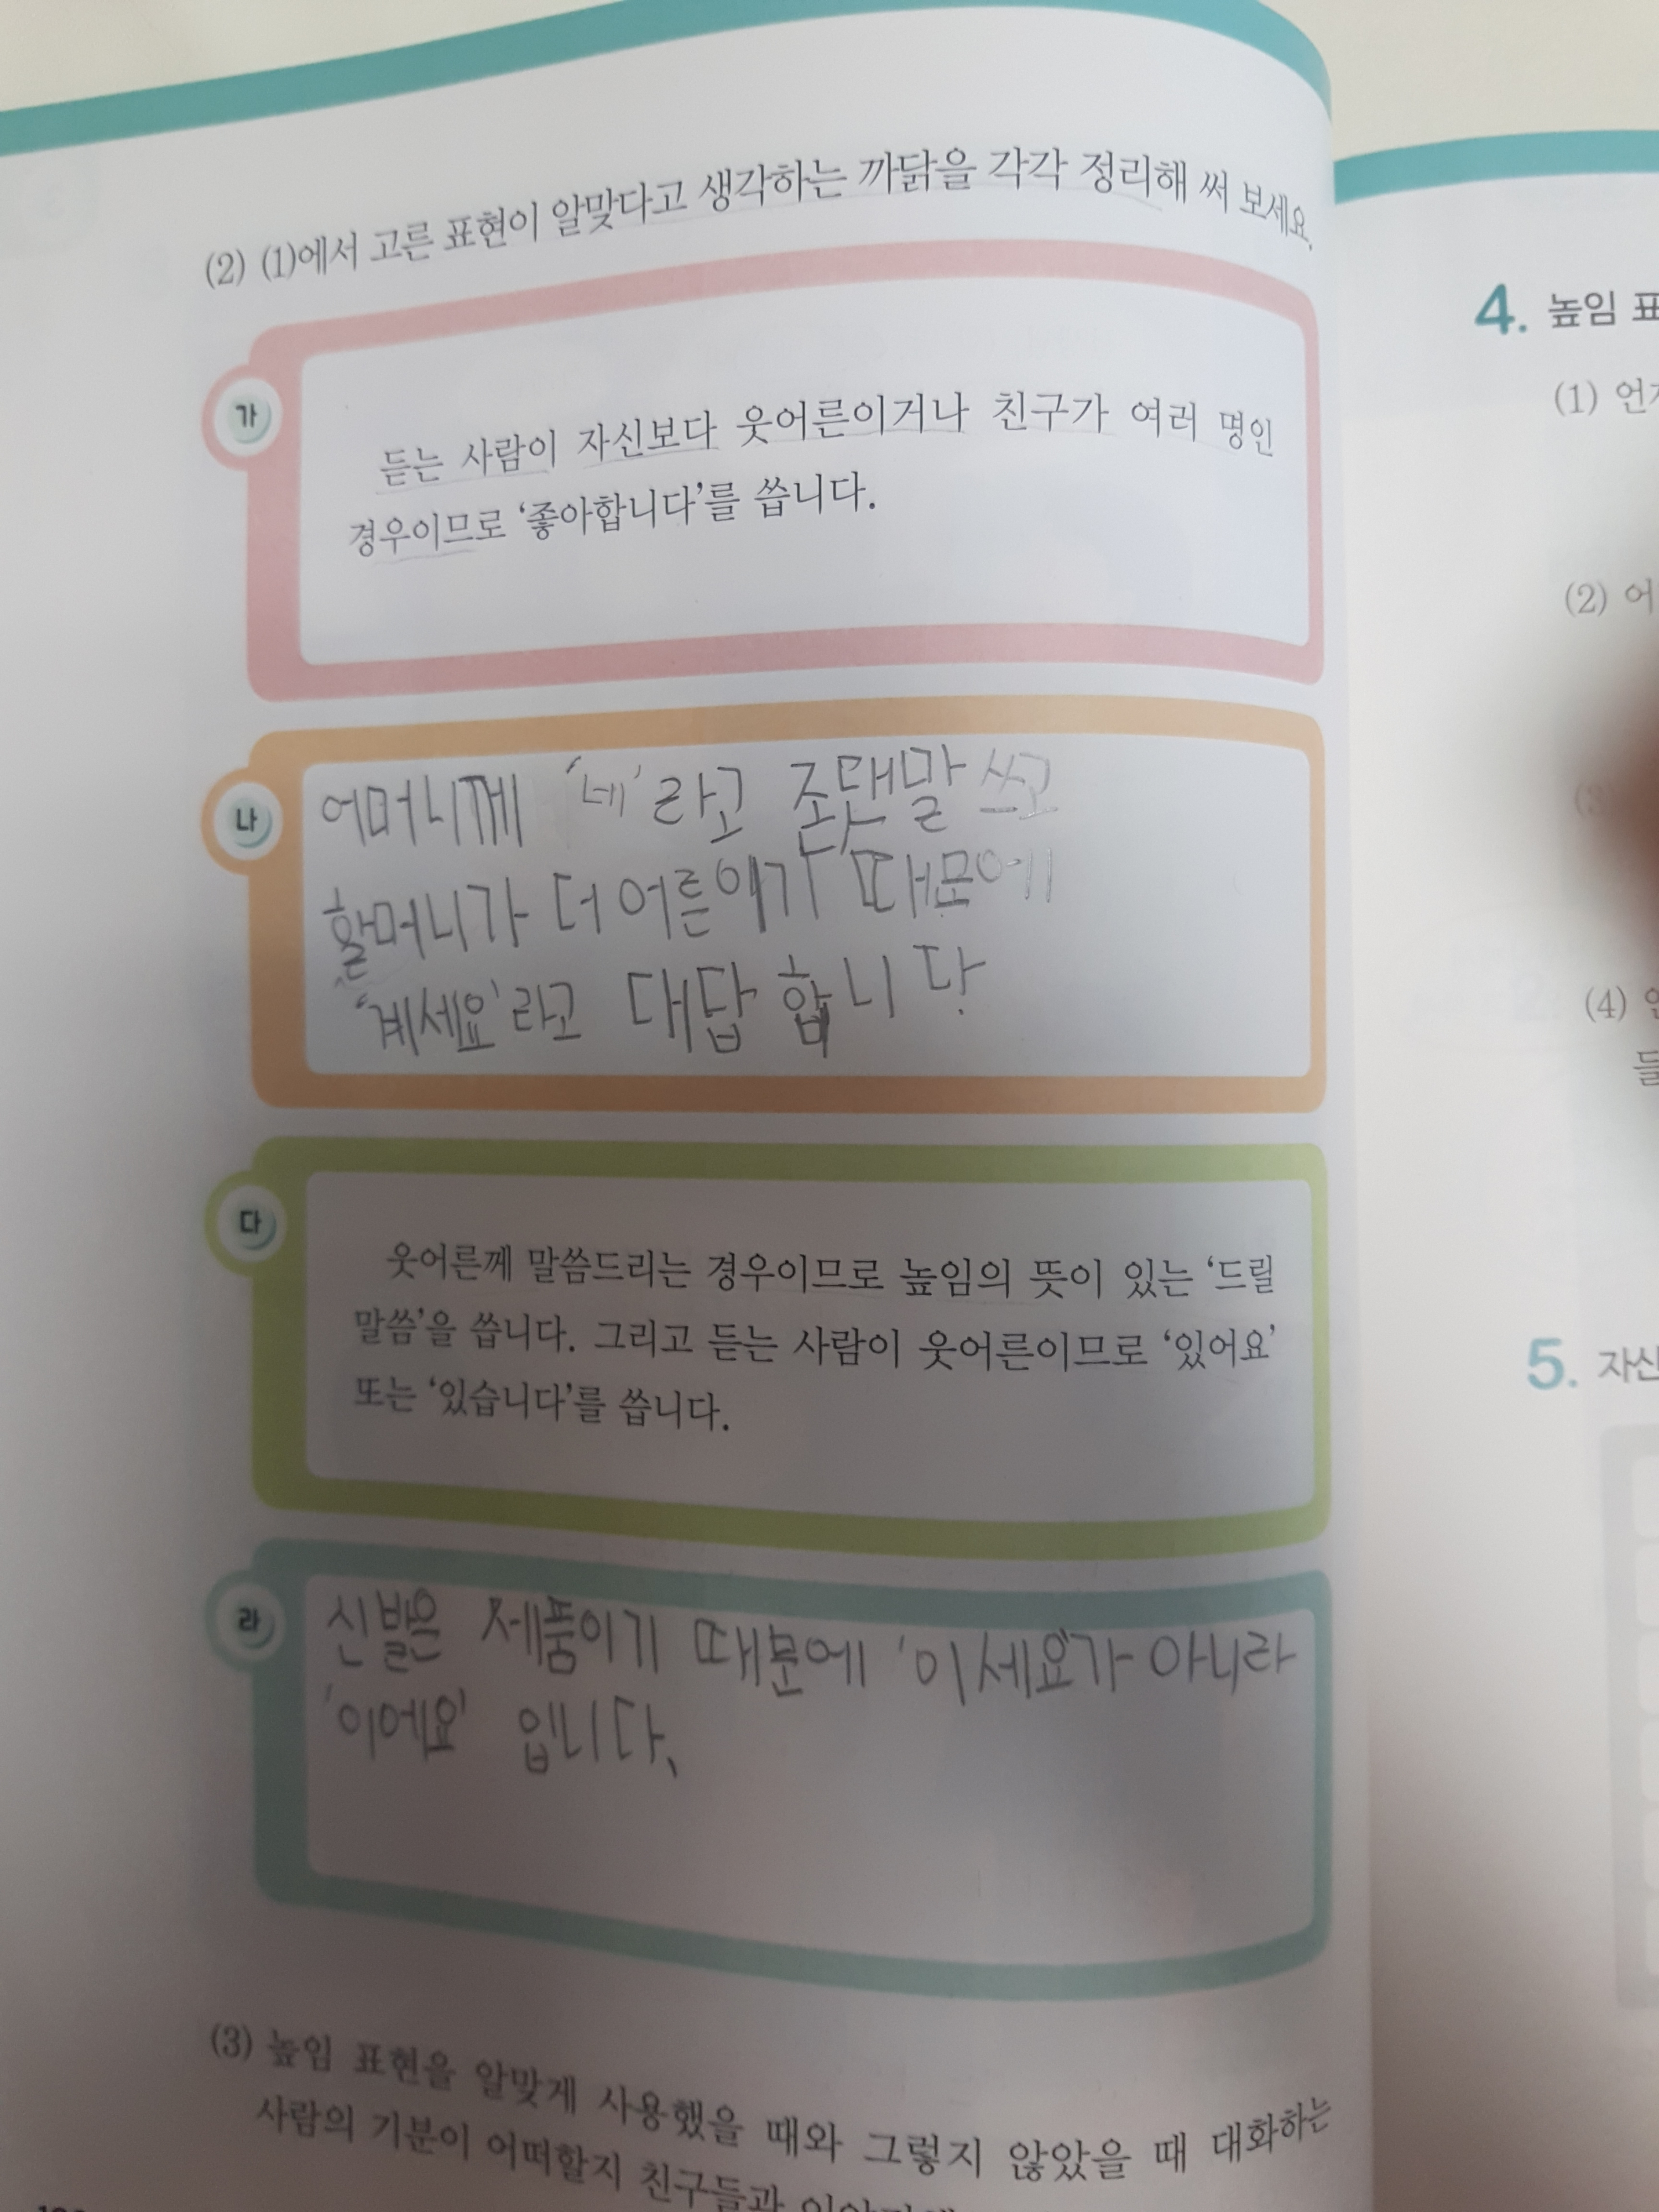 (2) (1)에서 고른 표현이 알맞다고 생각하는 까닭을 각각 정리해 써 보세요.
가
듣는 사람이 자신보다 웃어른이거나 친구가 여러 명인
경우이므로 ‘좋아합니다’를 씁니다.
나
어머니께 ‘네’라고 존댓말 쓰고
할머니가 더 어른이기 때문에
‘계세요’라고 대답 합니다.
다
웃어른께 말씀드리는 경우이므로 높임의 뜻이 있는 ‘드릴
말씀’을 씁니다. 그리고 듣는 사람이 웃어른이므로 ‘있어요’
또는 ‘있습니다’를 씁니다.
라
신발은 제품이기 때문에 ‘이세요’가 아니라
‘이에요’ 입니다.
(3) 높임 표현을 알맞게 사용했을 때와 그렇지 않았을 때 대화하는
사람의 기분이 어떠할지 친구들과
4. 높임
(1)
(2) 어
(4)
들
5. 자신